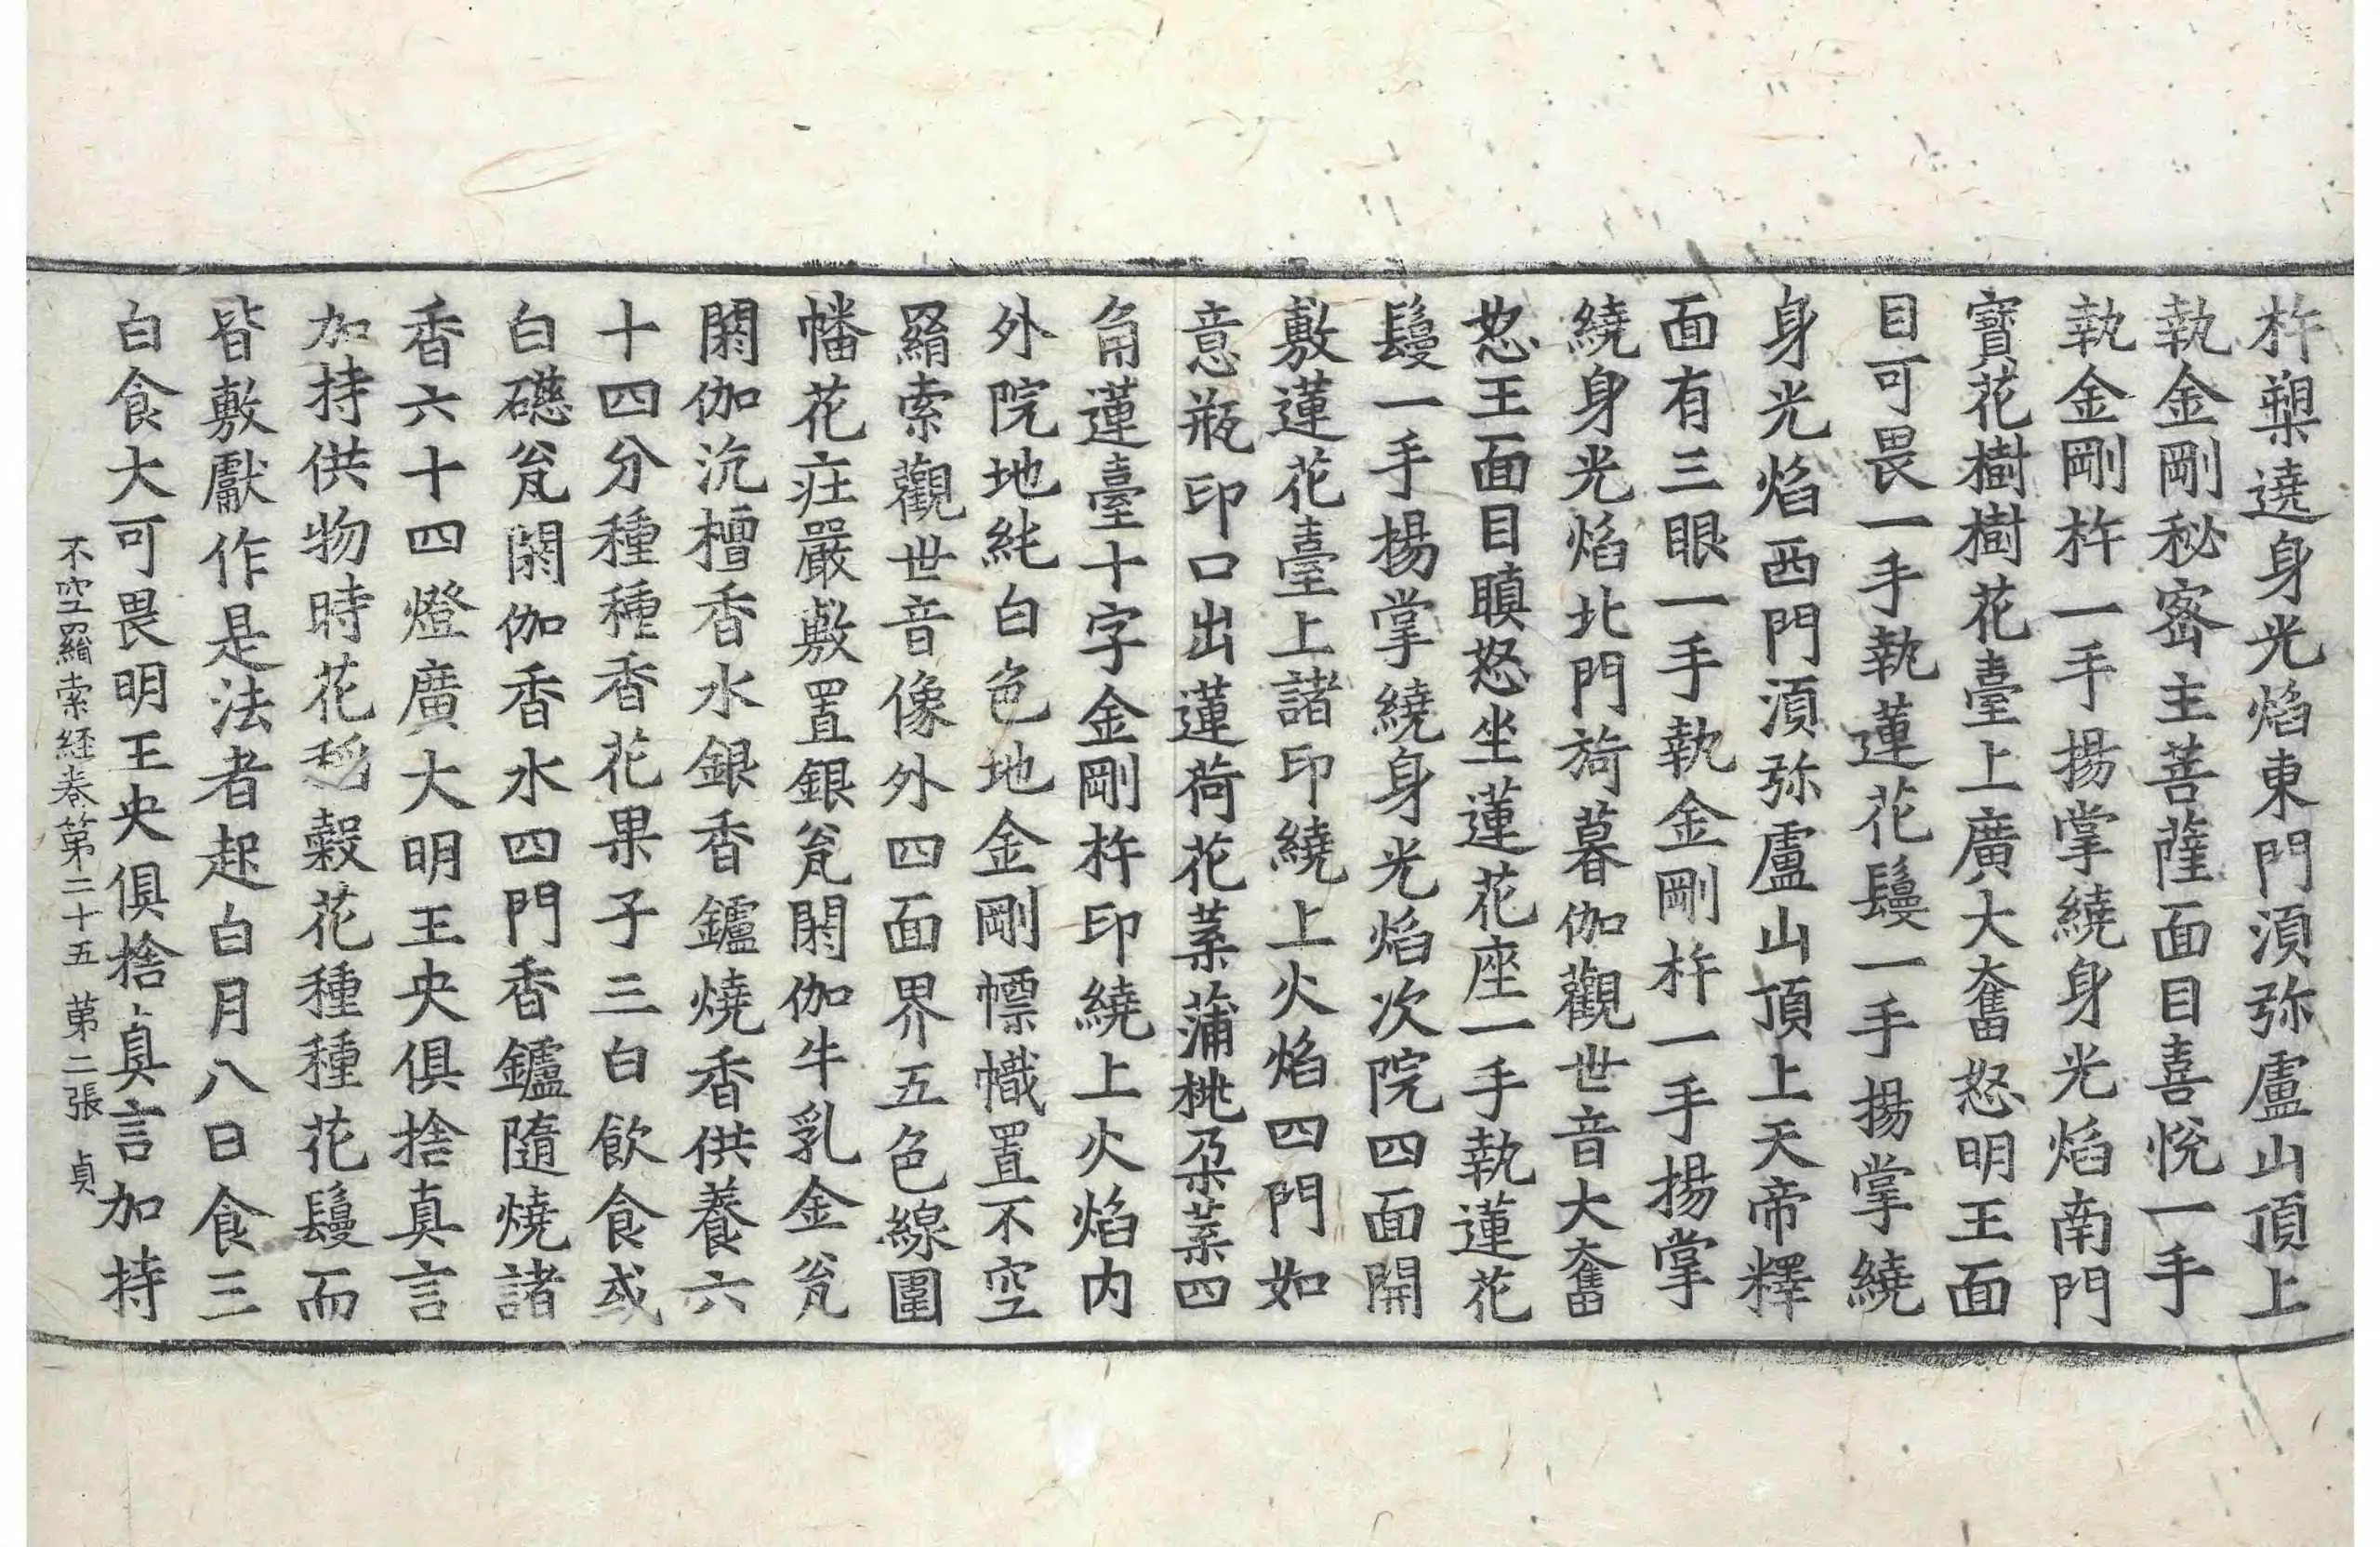 杵槊遶身光焰東門須弥盧山頂上
執金剛秘密主菩薩面目喜悅一手
執金剛杵一手揚掌繞身光焰南門
寶花樹樹花臺上廣大奮怒明王面
目可畏一手執蓮花鬘一手揚掌繞
身光焰西門須弥盧山頂上天帝釋
面有三眼一手執金剛杵一手揚掌
繞身光焰北門旖暮伽觀世音大奮
怒王面目瞋怒坐蓮花座一手執蓮花
鬘一手揚掌繞身光焰次院四面開
敷蓮花臺上諸印繞上火焰四門如
意瓶印口出蓮荷花葉蒲桃朶葉四
角蓮臺十字金剛杵印繞上火焰内
外院地純白色地金剛幖幟置不空
羂索觀世音像外四面界五色線圍
幡花庄嚴敷置銀瓮閼伽牛乳金瓮
閼伽沉檀香水銀香鑪燒香供養六
十四分種種香花果子三白飲食或
白礠瓮閼伽香水四門香鑪隨燒諸
香六十四燈廣大明王央俱捨真言
加持供物時花稻穀花種種花鬘而
皆敷獻作是法者起白月八日食三
白食大可畏明王央俱捨真言加持
不空羂索経卷第二十五 第二張 貞